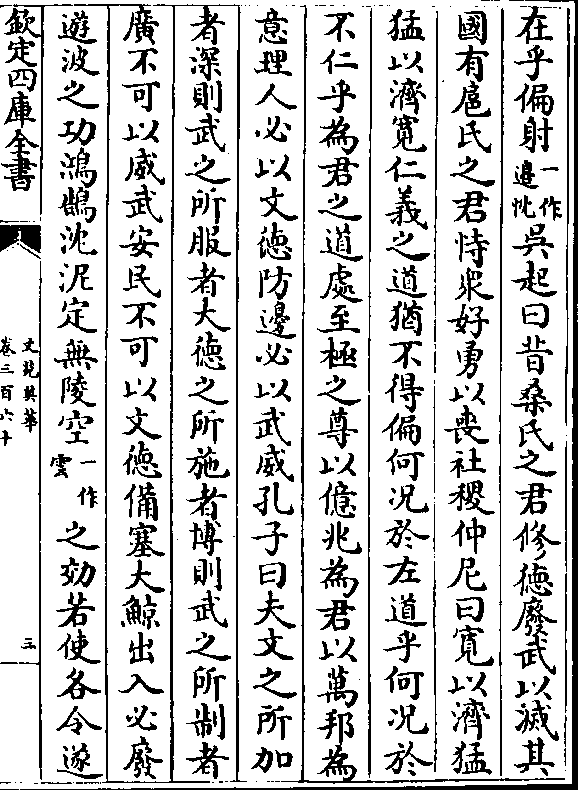 在乎偏射一作邊忱吳起曰昔桑氏之君修德廢武以滅其
國有扈氏之君恃衆好勇以喪社稷仲尼曰寛以濟猛
猛以濟寛仁義之道猶不得偏何況於左道乎何況於
不仁乎為君之道處至極之尊以億兆為君以萬邦為
意理人必以文徳防邊必以武威孔子曰夫文之所加
者深則武之所服者大徳之所施者博則武之所制者
廣不可以威武安民不可以文徳備塞大鯨出入必廢
遊波之功鴻鵠沈泥定無陵空一作雲之効若使各令遂
欽定四庫全書
文苑英華
卷三百六十
三